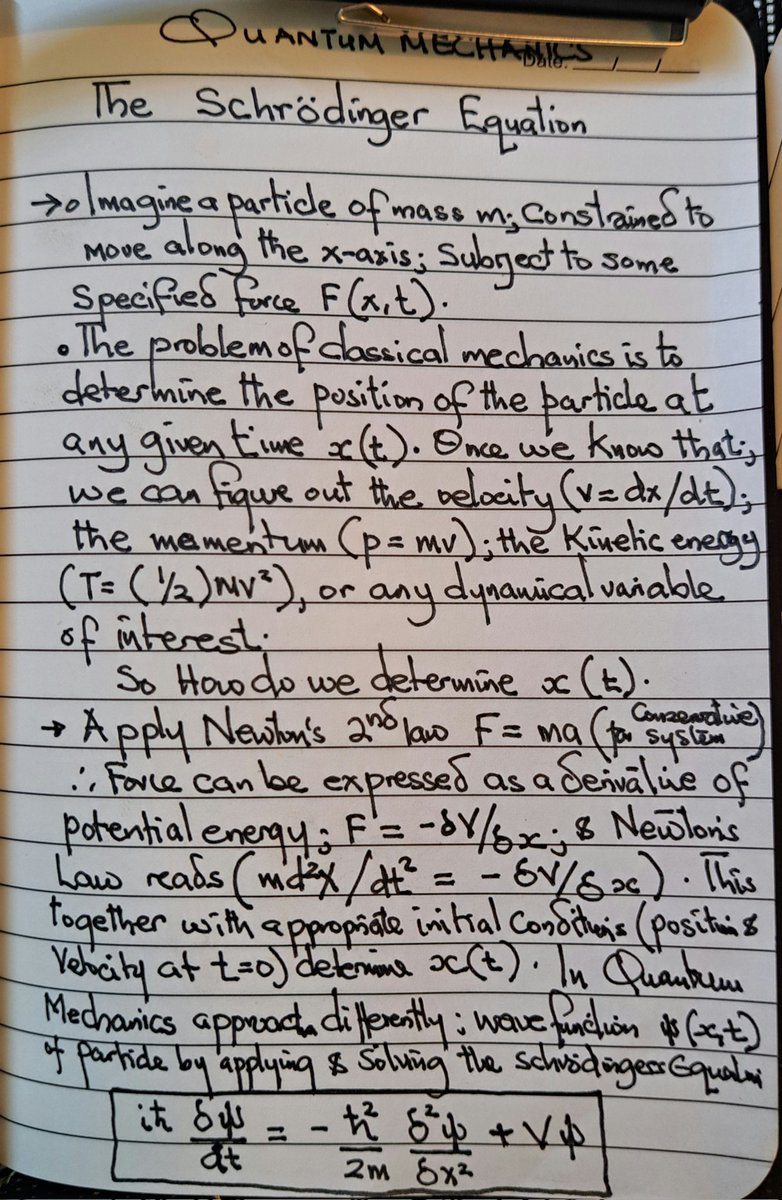 QUANTUM MECHANICS
Date: ___/___/___
The Schrödinger Equation
→ o Imagine a particle of mass m; Constrained to
move along the x-axis; Subject to some
Specified force F(x,t).
• The problem of classical mechanics is to
determine the position of the particle at
any given time x(t). Once we know that;
we can figure out the velocity (v=dx/dt);
the momentum (p=mv); the Kinetic energy
(T= (1/2)mv²), or any dynamical variable
of interest.
So How do we determine x(t).
→ Apply Newton's 2nd law F= ma (for Conservative system)
∴ Force can be expressed as a derivative of
potential energy; F = -δV/δx; & Newton's
Law reads (md²x/dt² = - δV/δx). This
together with appropriate initial Conditions (position &
Velocity at t=0) determine x(t). In Quantum
Mechanics approach differently; wave function ψ(x,t)
of particle by applying & Solving the Schrödingers Equation
iħ δψ/dt = - ħ²/2m δ²ψ/δx² + Vψ